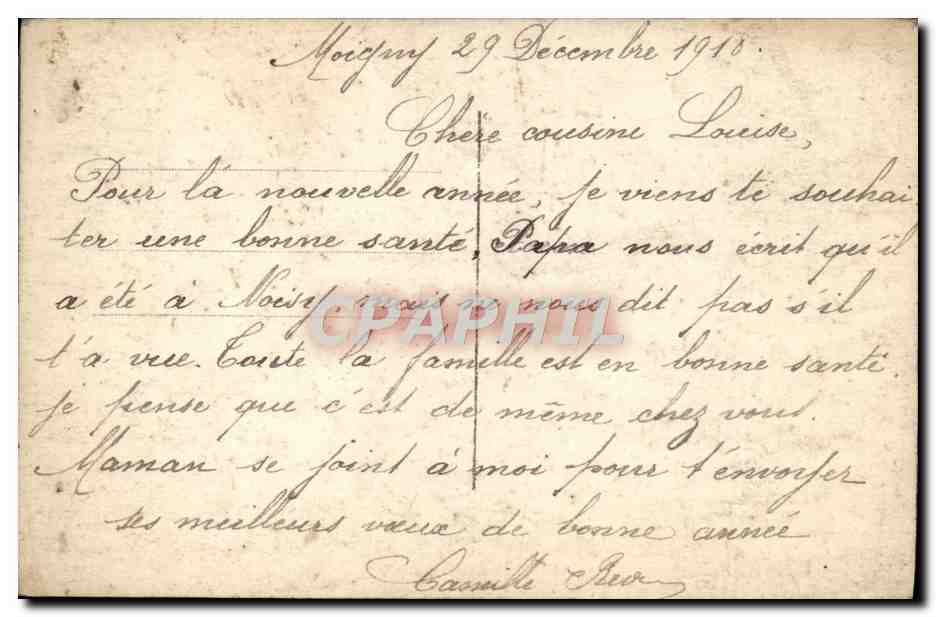 Moigny 29 Décembre 1910.
Chère cousine Louise,
Pour la nouvelle année, je viens te souhai
ter une bonne santé, Papa nous écrit qu'il
a été à Noisy, mais ne nous dit pas s'il
t'a vue. Toute la famille est en bonne santé.
je pense que c'est de même chez vous.
Maman se joint à moi pour t'envoyer
ses meilleurs vœux de bonne année
Camille
CPAPHIL